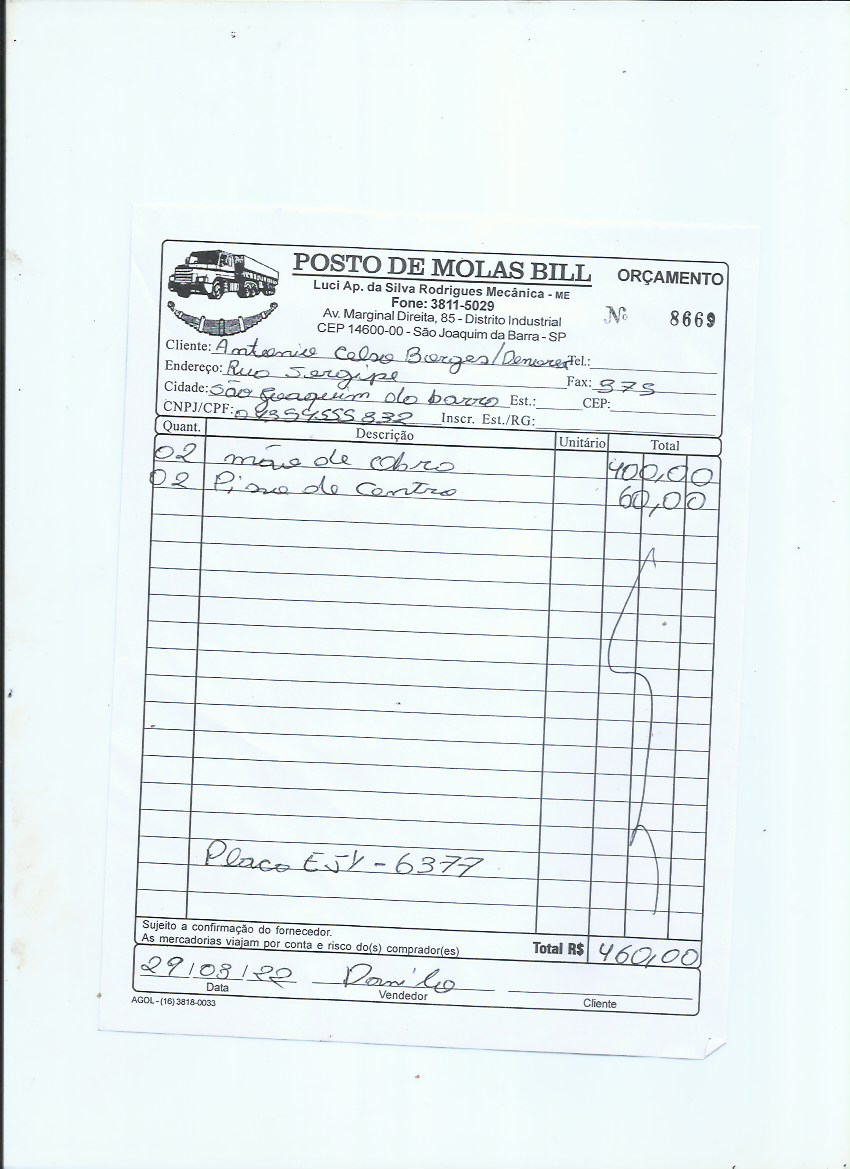 POSTO DE MOLAS BILL
ORÇAMENTO
Luci Ap. da Silva Rodrigues Mecânica - ME
Fone: 3811-5029
Av. Marginal Direita, 85 - Distrito Industrial
CEP 14600-00 - São Joaquim da Barra - SP
Nº 8669
Cliente: Antonio Celso Borges/ Tel.:
Endereço: Rua Sergipe Fax: 975
Cidade: São Joaquim da barra Est.: CEP:
CNPJ/CPF: Inscr. Est./RG:
Quant. Descrição Unitário Total
02 mão de obra 400,00
02 Pino de Centro 60,00
Placa EJY-6377
Sujeito a confirmação do fornecedor.
As mercadorias viajam por conta e risco do(s) comprador(es)
Total R$ 460,00
29/03/22 Danilo
Data Vendedor Cliente
AGOL - (16) 3818-0033